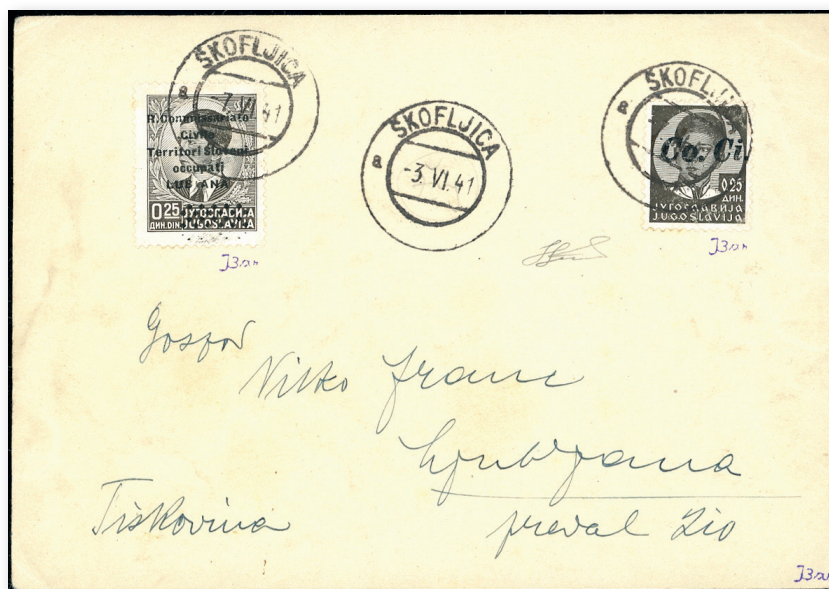 ŠKOFLJICA
a
-7.VI.41
R.Commissariato
Civile
Territori Sloveni
occupati
LUBIANA
0.25
ДИН. DIN
ЈУГОСЛАВИЈА
JUGOSLAVIJA
ŠKOFLJICA
a
-3.VI.41
ŠKOFLJI
a
Co. Ci.
0.25
ДИН.
ЈУГОСЛАВИЈА
JUGOSLAVIJA
Gospod
Franc
Ljubljana
Tiskovina